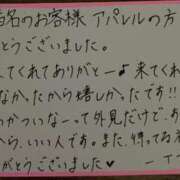 名のお客様 アパレルの方
とうございました。
てくれてありがとー♪来てくれ
なかったから嬉しかったです!!
つかついなーって外見だけど、
ら、いい人です。また、待ってるネ
がとうございました♥